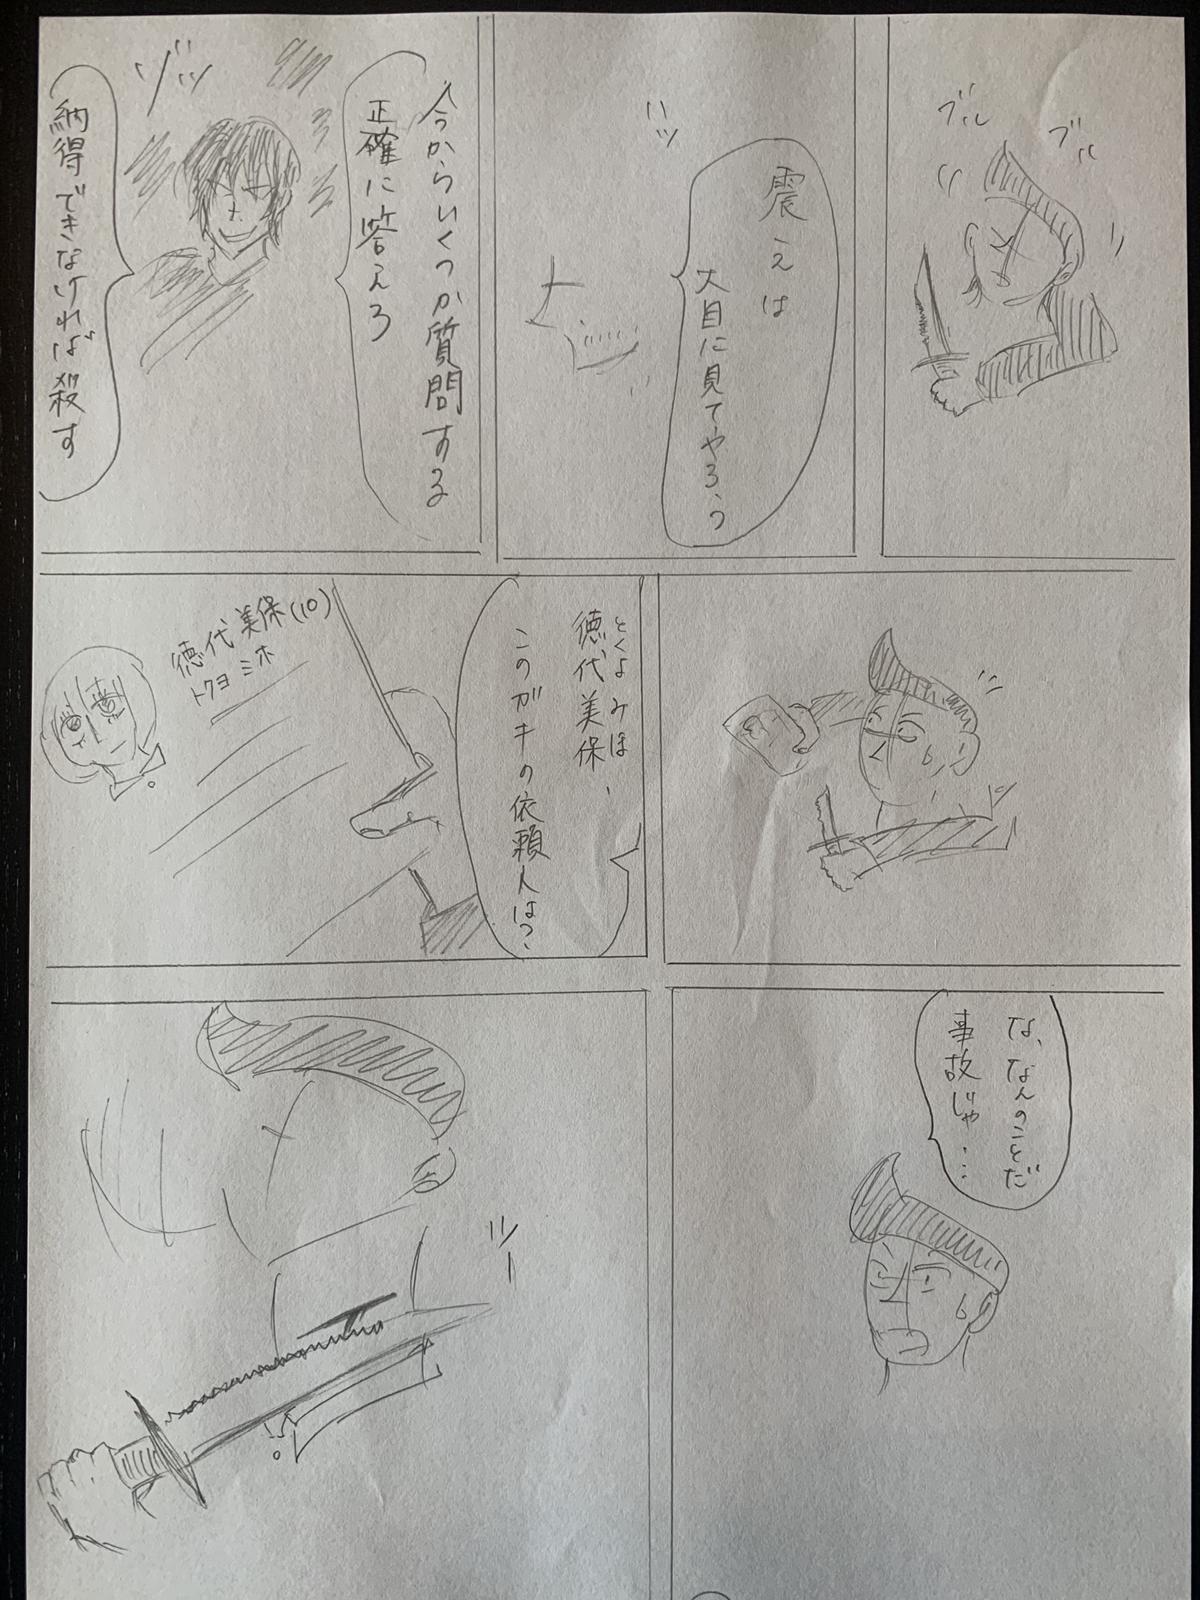 ブル
ブル
震えは
大目に見てやろう
ハッ
今からいくつか質問する
正確に答えろ
ゾッ
納得できなければ殺す
とくよ みほ
徳代美保、
このガキの依頼人は?
徳代美保(10)
トクヨ ミホ
な、なんのことだ
事故じゃ・・・
ツー